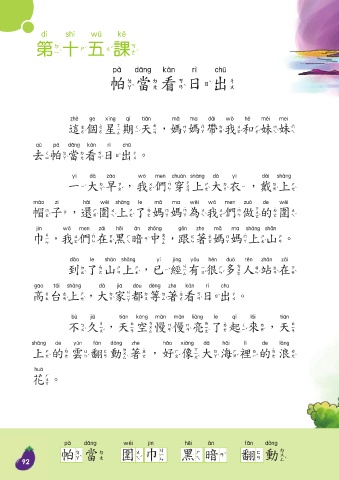 dì shí wǔ kè
第十五課
pà dāng kàn rì chū
帕當看日出
zhè ge xīng qí tiān mā ma dài wǒ hé mèi mei
這個星期天，媽媽帶我和妹妹
qù pà dāng kàn rì chū
去帕當看日出。
yí dà zǎo wǒ men chuān shàng dà yī dài shàng
一大早，我們穿上大衣，戴上
mào zi hái wéi shàng le mā ma wèi wǒ men zuò de wéi
帽子，還圍上了媽媽為我們做的圍
jīn wǒ men zài hēi àn zhōng gēn zhe mā ma shàng shān
巾，我們在黑暗中，跟著媽媽上山。
dào le shān shàng yǐ jīng yǒu hěn duō rén zhàn zài
到了山上，已經有很多人站在
gāo tái shàng dà jiā dōu děng zhe kàn rì chū
高台上，大家都等著看日出。
bù jiǔ tiān kōng màn màn liàng le qǐ lái tiān
不久，天空慢慢亮了起來，天
shàng de yún fān dòng zhe hǎo xiàng dà hǎi lǐ de làng
上的雲翻動著，好像大海裡的浪
huā
花。
pà dāng wéi jīn hēi àn fān dòng
帕當 圍巾 黑暗 翻動
92